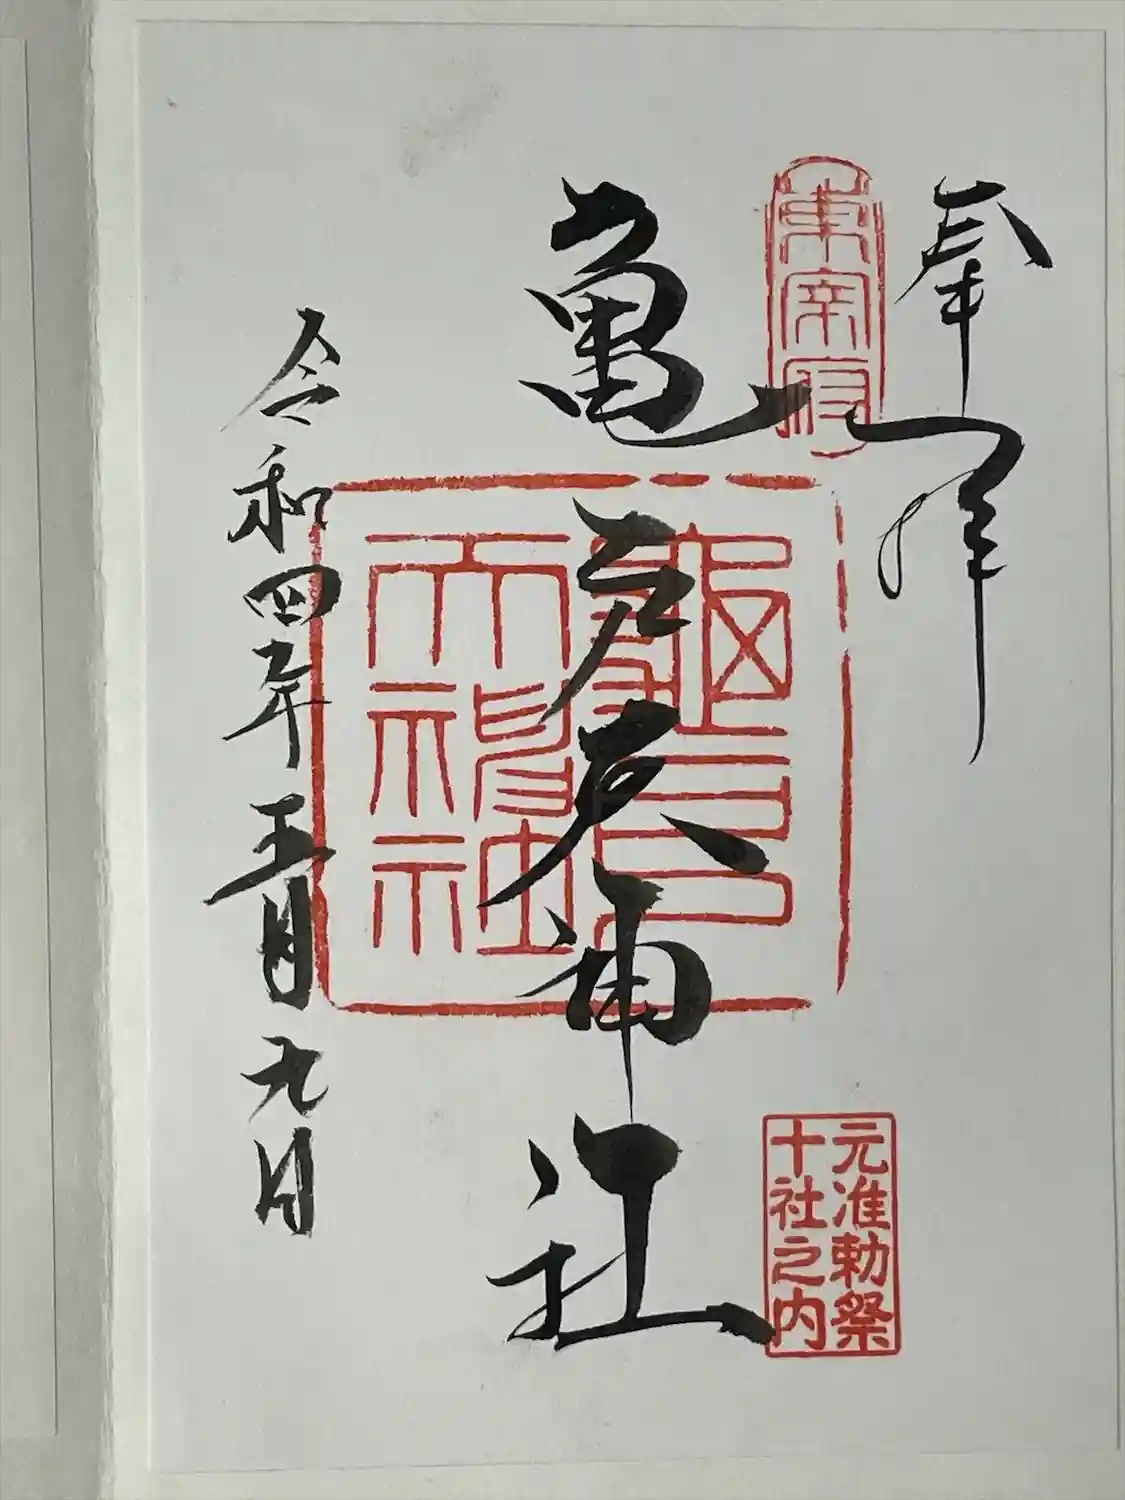 奉拝
東宰府
元准勅祭
十社之内
亀戸天神社
龜戸
天神社
令和四年五月九日